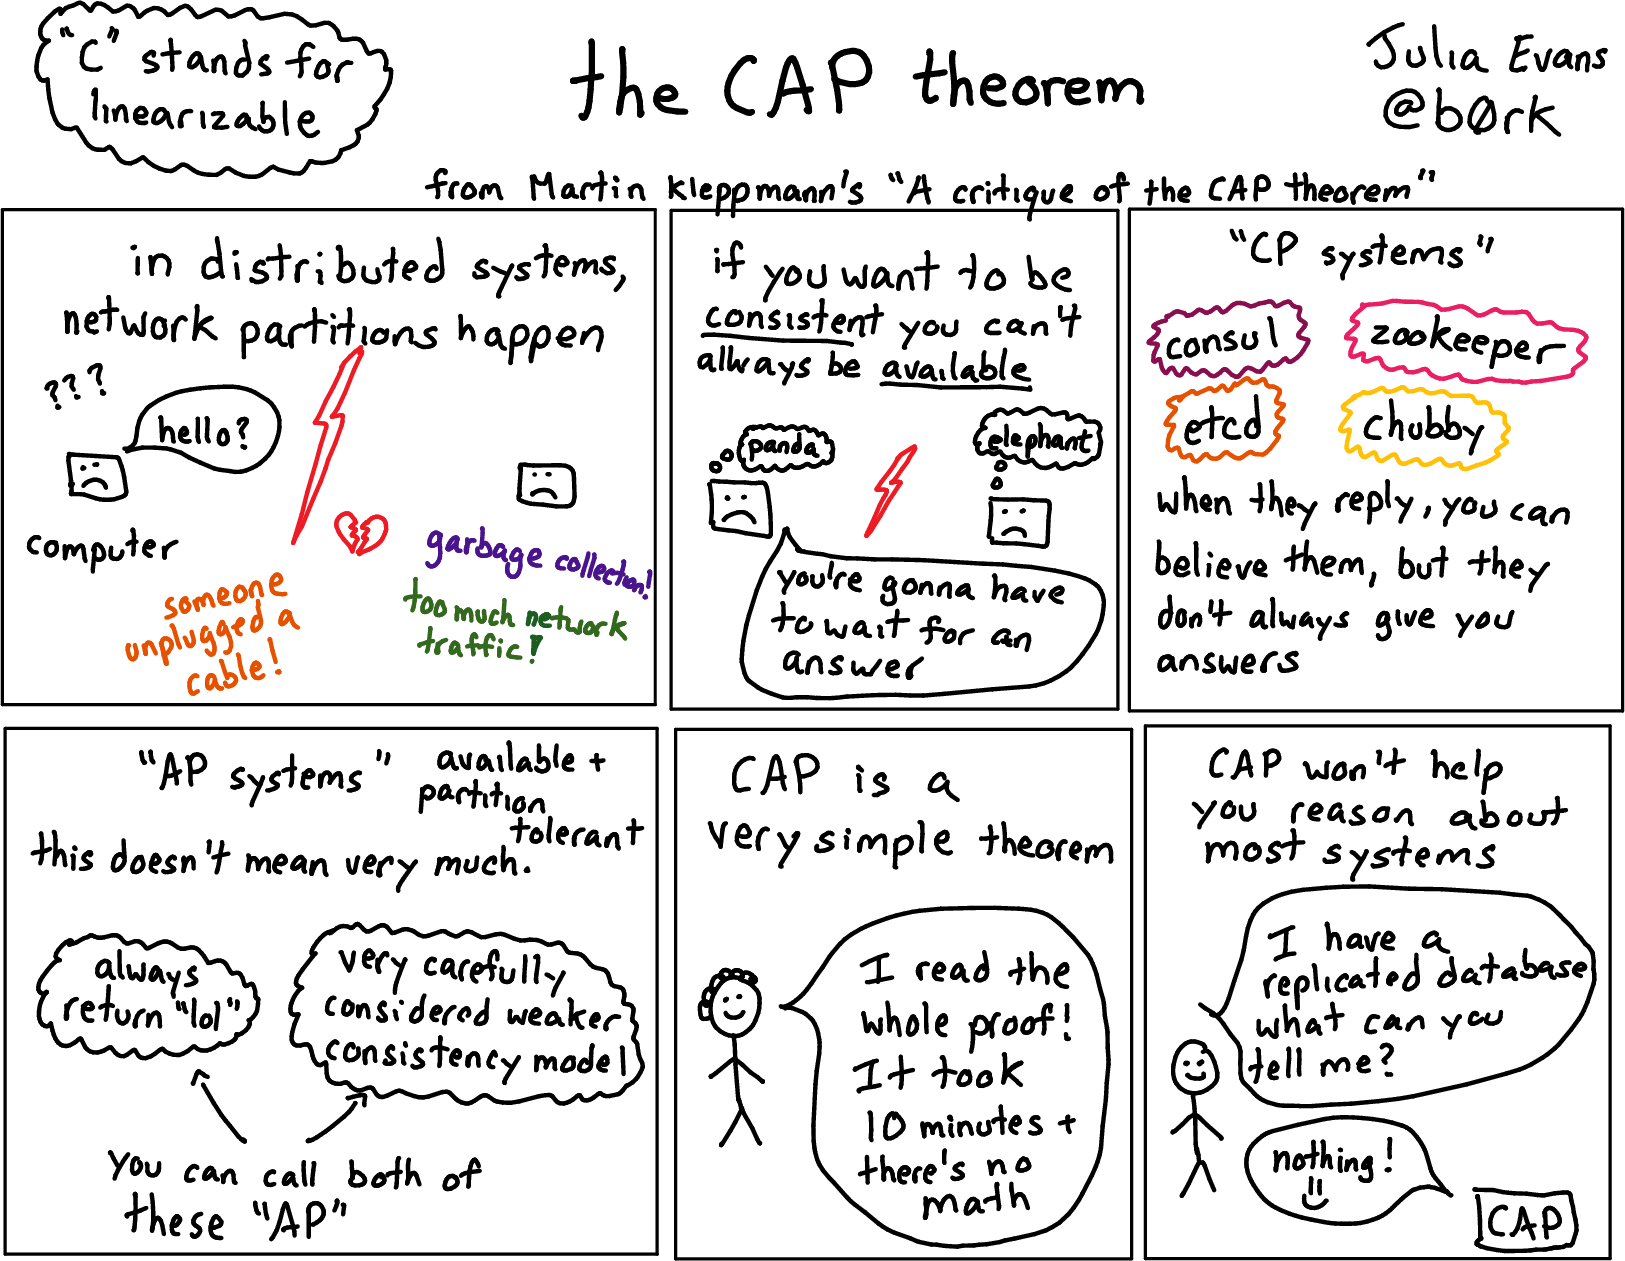 "C" stands for
linearizable
the CAP theorem
Julia Evans
@b0rk
from Martin Kleppmann's "A critique of the CAP theorem"
in distributed systems,
network partitions happen
???
hello?
computer
someone
unplugged a
cable!
garbage collection!
too much network
traffic!
if you want to be
consistent you can't
always be available
panda
elephant
you're gonna have
to wait for an
answer
"CP systems"
consul
zookeeper
etcd
chubby
when they reply, you can
believe them, but they
don't always give you
answers
"AP systems"
available +
partition
tolerant
this doesn't mean very much.
always
return "lol"
very carefully
considered weaker
consistency model
you can call both of
these "AP"
CAP is a
very simple theorem
I read the
whole proof!
It took
10 minutes +
there's no
math
CAP won't help
you reason about
most systems
I have a
replicated database
what can you
tell me?
nothing!
CAP